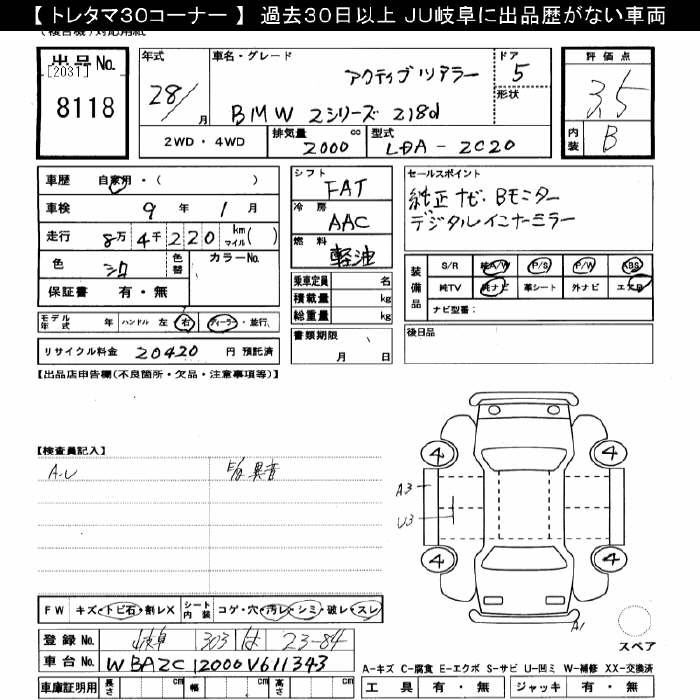 【 トレタマ30コーナー 】 過去30日以上 JU岐阜に出品歴がない車両
対応用紙
出品No.
[2031]
8118
年式
28/
月
車名・グレード
アクティブツアラー
BMW 2シリーズ 218d
ドア
5
形状
評価点
3.5
内装
B
2WD・4WD
排気量
cc
2000
型式
LDA-2C20
車歴
自家用・( )
車検
9 年 1 月
走行
8万 4千 220 km マイル( )
色
シロ
色替
カラーNo.
保証書
有・無
シフト
FAT
冷房
AAC
燃料
軽油
乗車定員
名
積載量
kg
総重量
kg
セールスポイント
純正ナビ・Bモニター
デジタルインナーミラー
装備品
S/R
純A/W
P/S
P/W
ABS
純TV
純ナビ
革シート
外ナビ
エアB
ナビ型番:
モデル年式
年
ハンドル
左
右
ディーラー・並行
リサイクル料金
20420
円 預託済
書類期限
月
日
後日品
【出品店申告欄(不良箇所・欠品・注意事項等)】
【検査員記入】
A.U
異音
4
4
A3
U3
4
4
A1
スペア
FW
キズ・トビ石・割レX
シート内装
コゲ・穴・汚レ・シミ・破レ・スレ
登録No.
岐阜
303
は
23-84
車台No.
WBA2C12000V611343
車庫証明用
長さ
cm
幅
cm
高さ
cm
A-キズ C-腐食 E-エクボ S-サビ U-凹ミ W-補修 XX-交換済
工具
有・無
ジャッキ
有・無